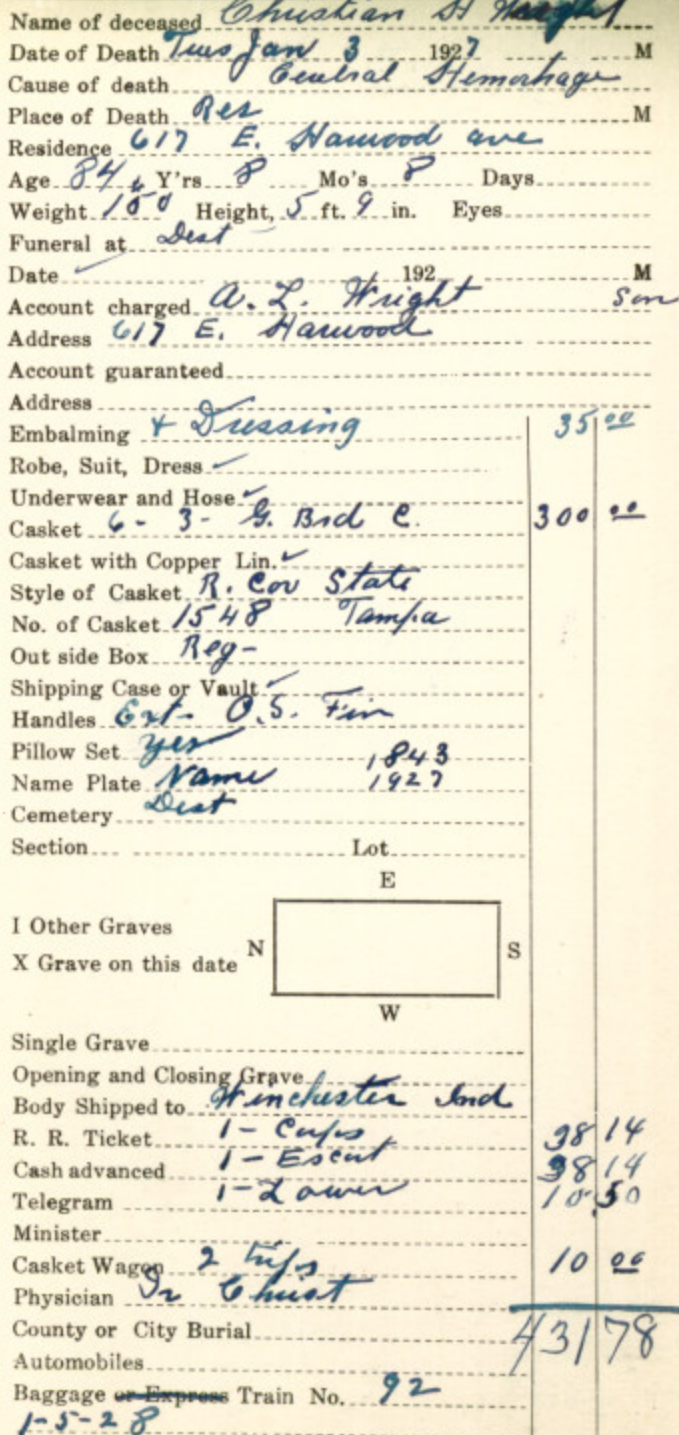 Name of deceased Christian H Wright
Date of Death Tues Jan 3 1927 M
Cause of death Cerebral Hemorhage
Place of Death Res M
Residence 617 E. Harwood ave
Age 84 Y'rs 8 Mo's 8 Days
Weight 150 Height, 5 ft. 9 in. Eyes
Funeral at Dest
Date ✓ 192 M
Account charged A. L. Wright Son
Address 617 E. Harwood
Account guaranteed
Address
Embalming + Dressing 35 00
Robe, Suit, Dress ✓
Underwear and Hose ✓
Casket 6 - 3 - G. Brd C. 300 00
Casket with Copper Lin. ✓
Style of Casket R. Cov State
No. of Casket 1548 Tampa
Out side Box Reg-
Shipping Case or Vault ✓
Handles Ext- O.S. Fin
Pillow Set yes 1843
Name Plate Name 1927
Cemetery Dest
Section Lot
E
I Other Graves
N S
X Grave on this date
W
Single Grave
Opening and Closing Grave
Body Shipped to Winchester Ind
R. R. Ticket 1 - Corps 38 14
Cash advanced 1 - Escort 38 14
Telegram 1 - Lower 10 50
Minister
Casket Wagon 2 trips 10 00
Physician Dr Christ
County or City Burial 431 78
Automobiles
Baggage or Express Train No. 92
1-5-28